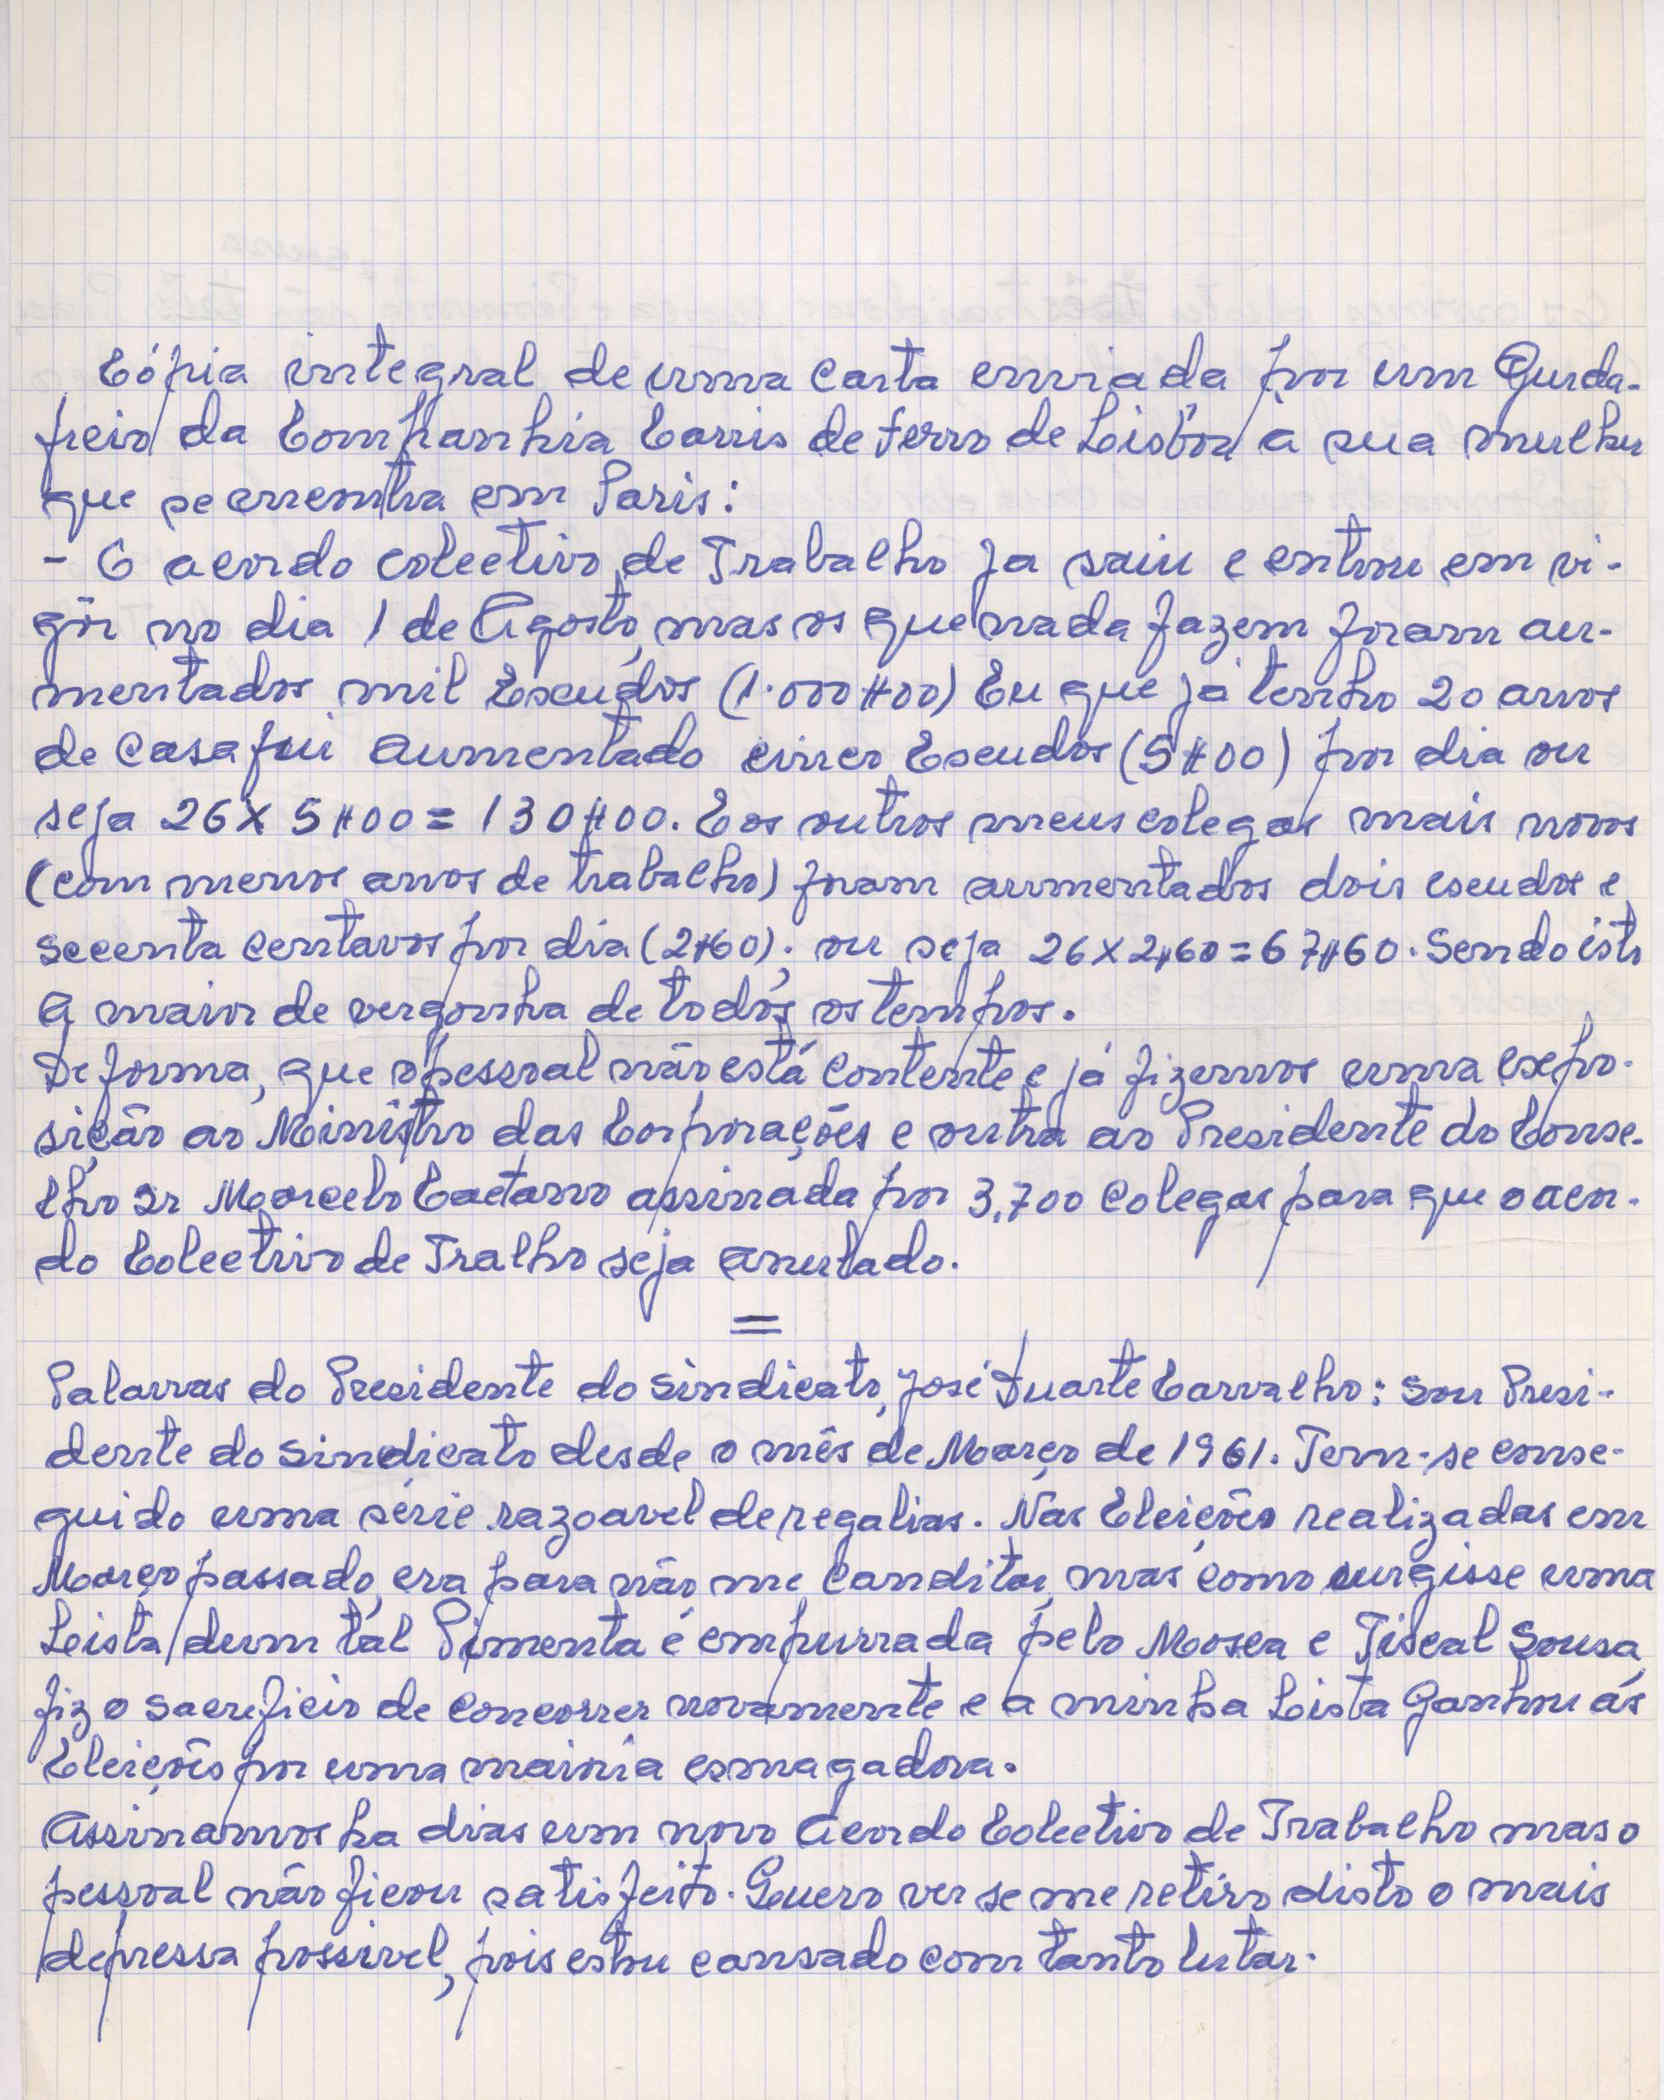 Cópia integral de uma carta enviada por um Gurda-
freio da Companhia Carris de ferro de Lisbôa a sua mulher
que se encontra em Paris:
- O acordo colectivo de Trabalho ja saiu e entrou em vi-
gôr no dia 1 de Agosto, mas os que nada fazem foram au-
mentados mil Escudos (1.000$00) Eu que já tenho 20 anos
de Casa fui aumentado cinco Escudos (5$00) por dia ou
seja 26 X 5$00 = 130$00. E os outros meus colegas mais novos
(com menos anos de trabalho) foram aumentados dois escudos e
secenta centavos por dia (2$60); ou seja 26 X 2$60 = 67$60. Sendo isto
a maior de vergonha de todos os tempos.
De forma, que o pessoal não está contente e já fizemos uma expo-
sição ao Ministro das Corporações e outra ao Presidente do Conse-
lho Sr Marcelo Caetano assinada por 3,700 Colegas para que o acor-
do Colectivo de Tralho seja anulado.
=
Palavras do Presidente do Sindicato, José Duarte Carvalho: Sou Presi-
dente do Sindicato desde o mês de Março de 1961. Tem-se conse-
guido uma série razoavel de regalias. Nas Eleições realizadas em
Março passado, era para não me Canditar, mas como surgisse uma
Lista dum tál Pimenta e empurrada pelo Mosca e Fiscal Sousa,
fiz o sacrificio de concorrer novamente e a minha Lista Ganhou ás
Eleições por uma maioria esmagadora.
Assinamos ha dias um novo Acordo Colectivo de Trabalho mas o
pessoal não ficou satisfeito. Quero ver se me retiro disto o mais
depressa possivel, pois estou cansado com tanto lutar.